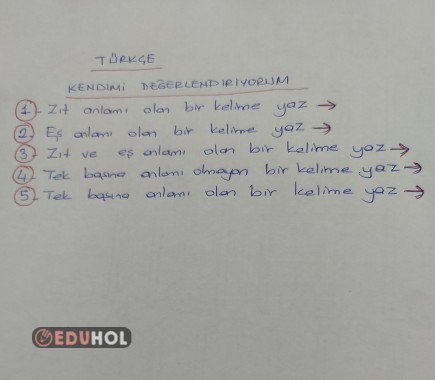 TÜRKÇE
KENDİMİ DEĞERLENDİRİYORUM
1- Zıt anlamı olan bir kelime yaz →
2- Eş anlamı olan bir kelime yaz →
3- Zıt ve eş anlamı olan bir kelime yaz →
4- Tek başına anlamı olmayan bir kelime yaz →
5- Tek başına anlamı olan bir kelime yaz →
EDUHOL